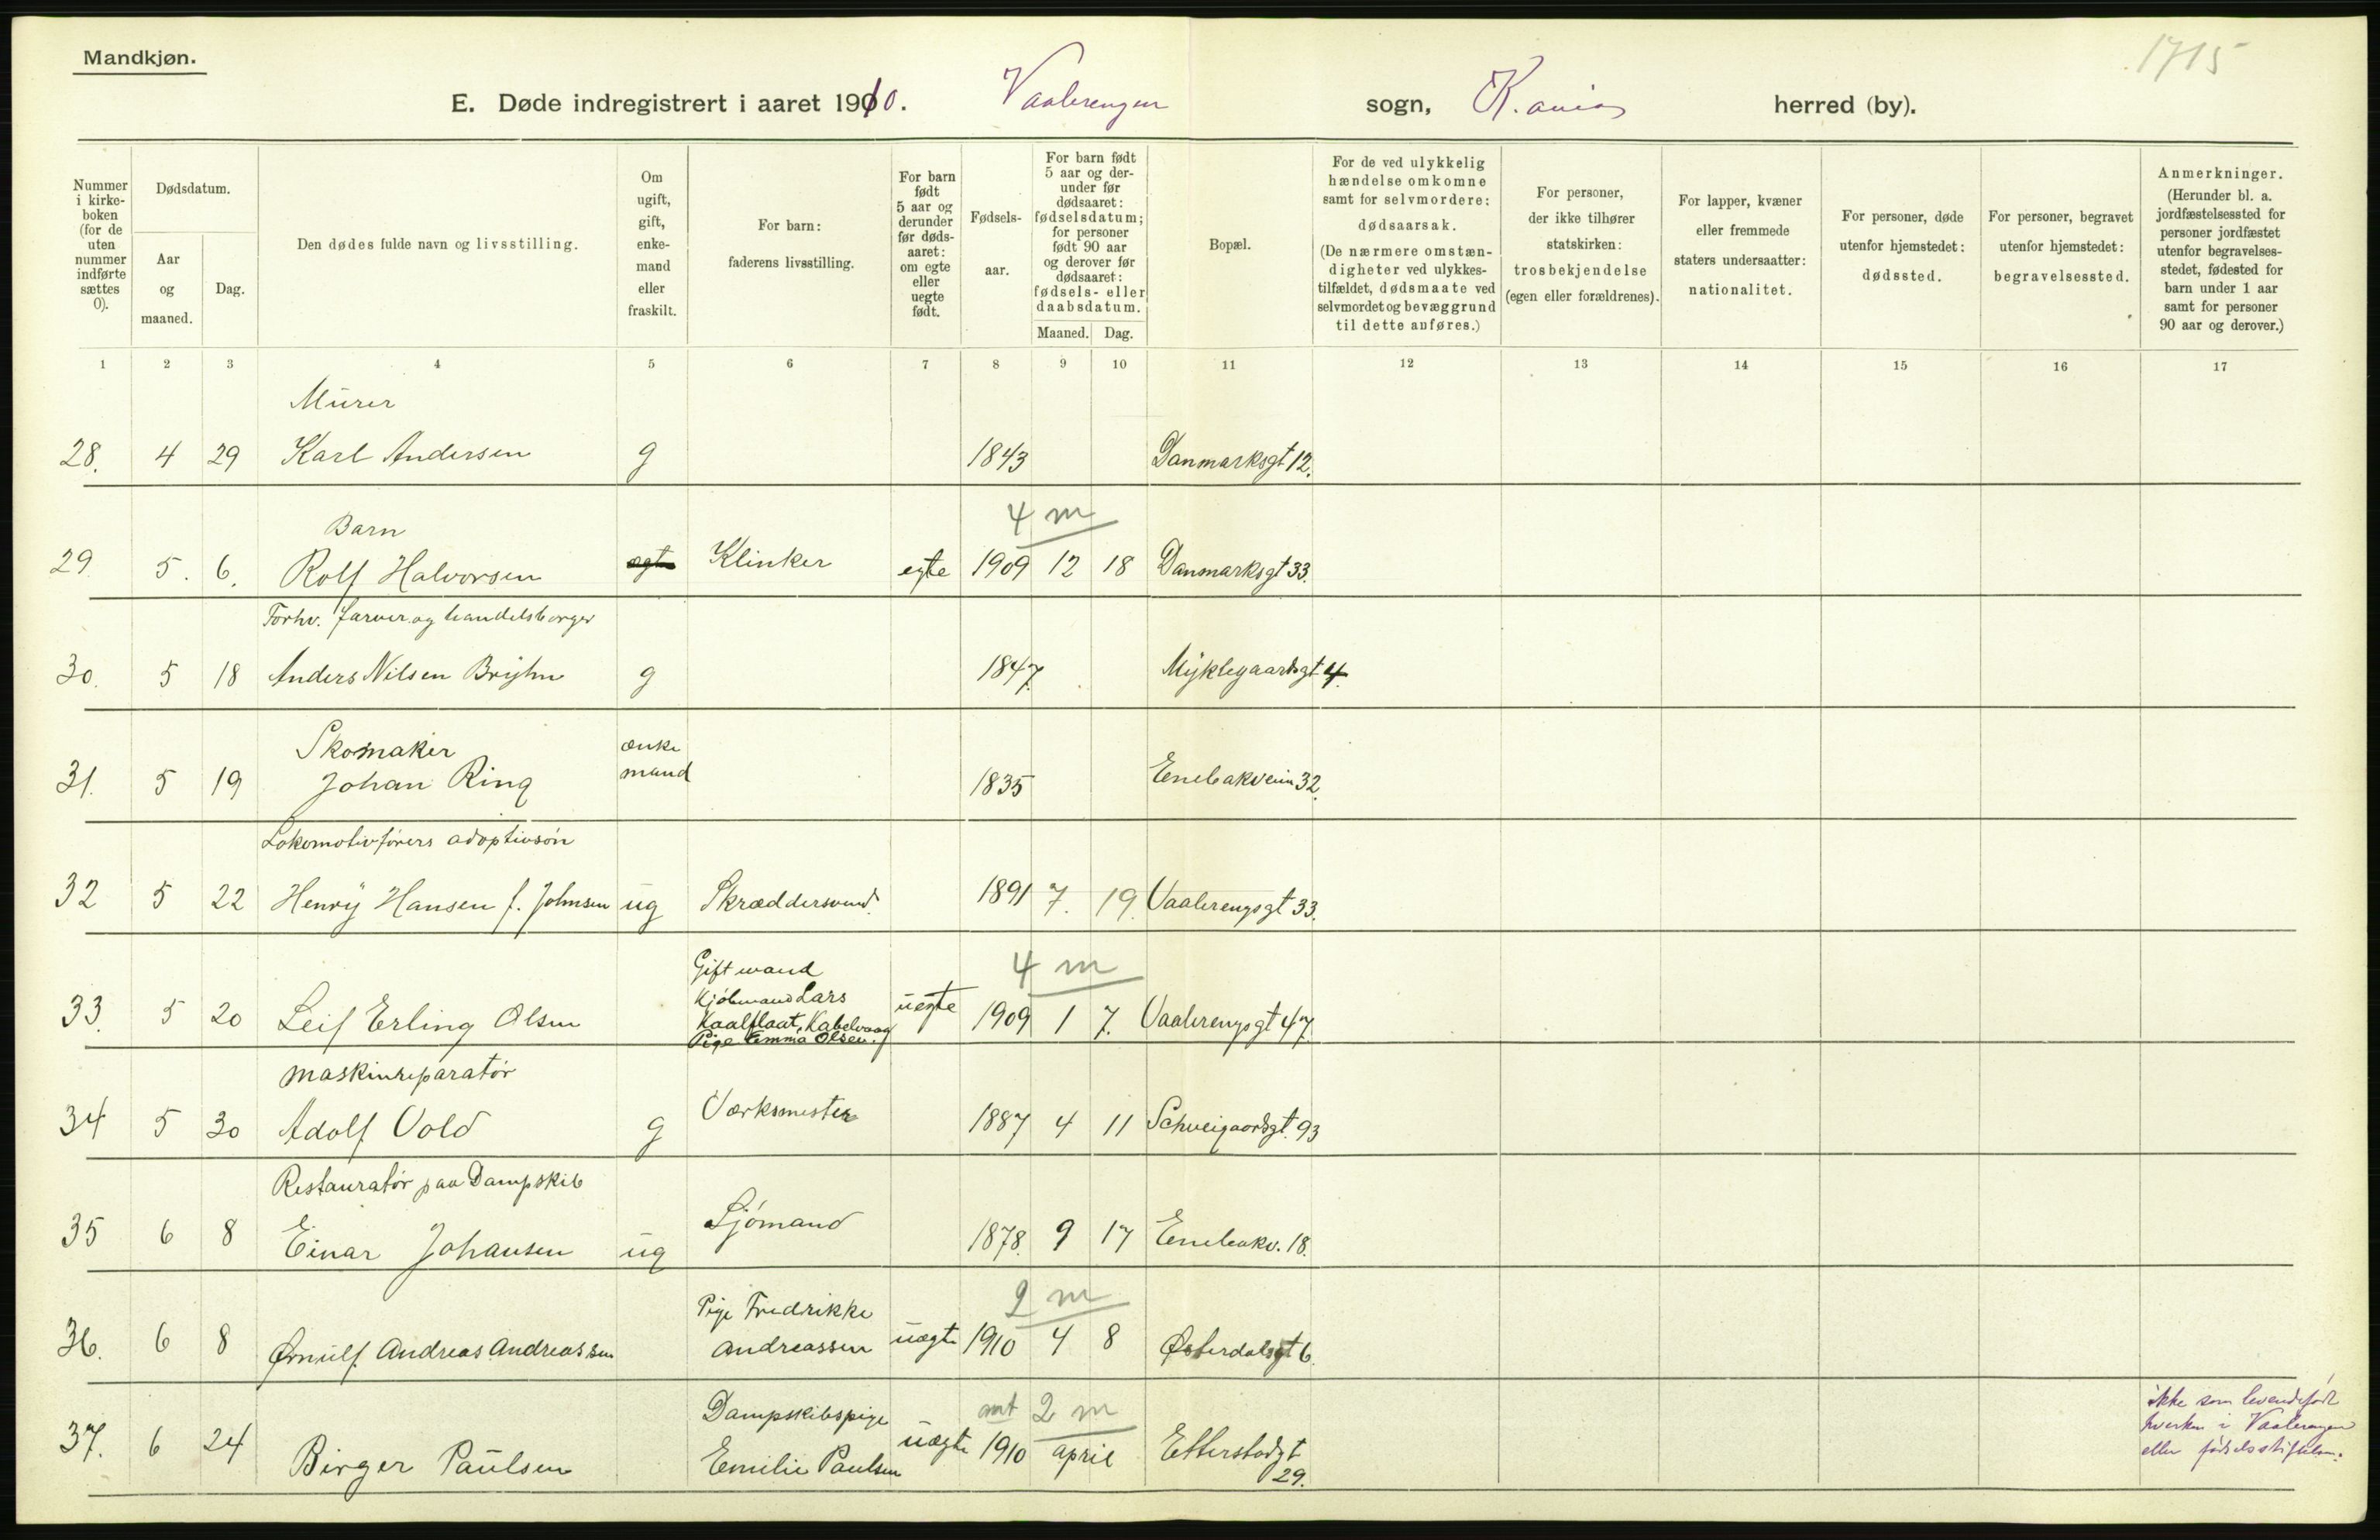 Mandkjøn.
1715
E. Døde indregistrert i aaret 1910. Vaalerengen sogn, K.ania herred (by).
Nummer i kirkeboken (for de uten nummer indførte sættes 0).
Dødsdatum.
Aar og maaned.
Dag.
Den dødes fulde navn og livsstilling.
Om ugift, gift, enkemand eller fraskilt.
For barn: faderens livsstilling.
For barn født 5 aar og derunder før dødsaaret: om egte eller uegte født.
Fødselsaar.
For barn født 5 aar og derunder før dødsaaret: fødselsdatum; for personer født 90 aar og derover før dødsaaret: fødsels- eller daabsdatum.
Maaned. Dag.
Bopæl.
For de ved ulykkelig hændelse omkomne samt for selvmordere: dødsaarsak. (De nærmere omstændigheter ved ulykkestilfældet, dødsmaate ved selvmordet og bevæggrund til dette anføres.)
For personer, der ikke tilhører statskirken: trosbekjendelse (egen eller forældrenes).
For lapper, kvæner eller fremmede staters undersaatter: nationalitet.
For personer, døde utenfor hjemstedet: dødssted.
For personer, begravet utenfor hjemstedet: begravelsessted.
Anmerkninger. (Herunder bl. a. jordfæstelsessted for personer jordfæstet utenfor begravelsesstedet, fødested for barn under 1 aar samt for personer 90 aar og derover.)
1 2 3 4 5 6 7 8 9 10 11 12 13 14 15 16 17
Murer
28. 4 29 Karl Andersen g 1843 Danmarksgt 12.
Barn 4 m
29. 5. 6. Rolf Halvorsen ægte Klinker egte 1909 12 18 Danmarksgt 33.
Forhv. farver og handelsborger
30. 5 18 Anders Nilsen Bryhn g 1847. Myklegaardsgt 4.
Skomaker ænke
31. 5 19 Johan Ring mand 1835 Enebakveien 32.
Lokomotivførers adoptivsøn
32 5 22 Henry Hansen f. Johnsen ug Skræddersvend. 1891 7. 19. Vaalerengsgt 33.
Gift mand 4 m
Kjøbmand Lars
33. 5 20 Leif Erling Olsen Kaalflaat, Kabelvaag uegte 1909 1 7. Vaalerengsgt 47.
Pige Emma Olsen.
Maskinreparatør
34 5 30 Adolf Vold g Værksmester 1887 4 11 Schweigaardsgt. 93
Restauratør paa Dampskib
35 6 8 Einar Johansen ug Sjømand 1878. 9 17 Enebakv. 18.
Pige Fredrikke 2 m
36. 6 8 Ørnulf Andreas Andreassen Andreassen uægte 1910 4 8 Østerdalsgt 6.
Dampskibspige ant 2 m
37. 6 24 Birger Paulsen Emilie Paulsen uægte 1910 april Etterstadgt 29.
ikke som levendefødt
hverken i Vaalerengen
eller fødselsstiftelsen.